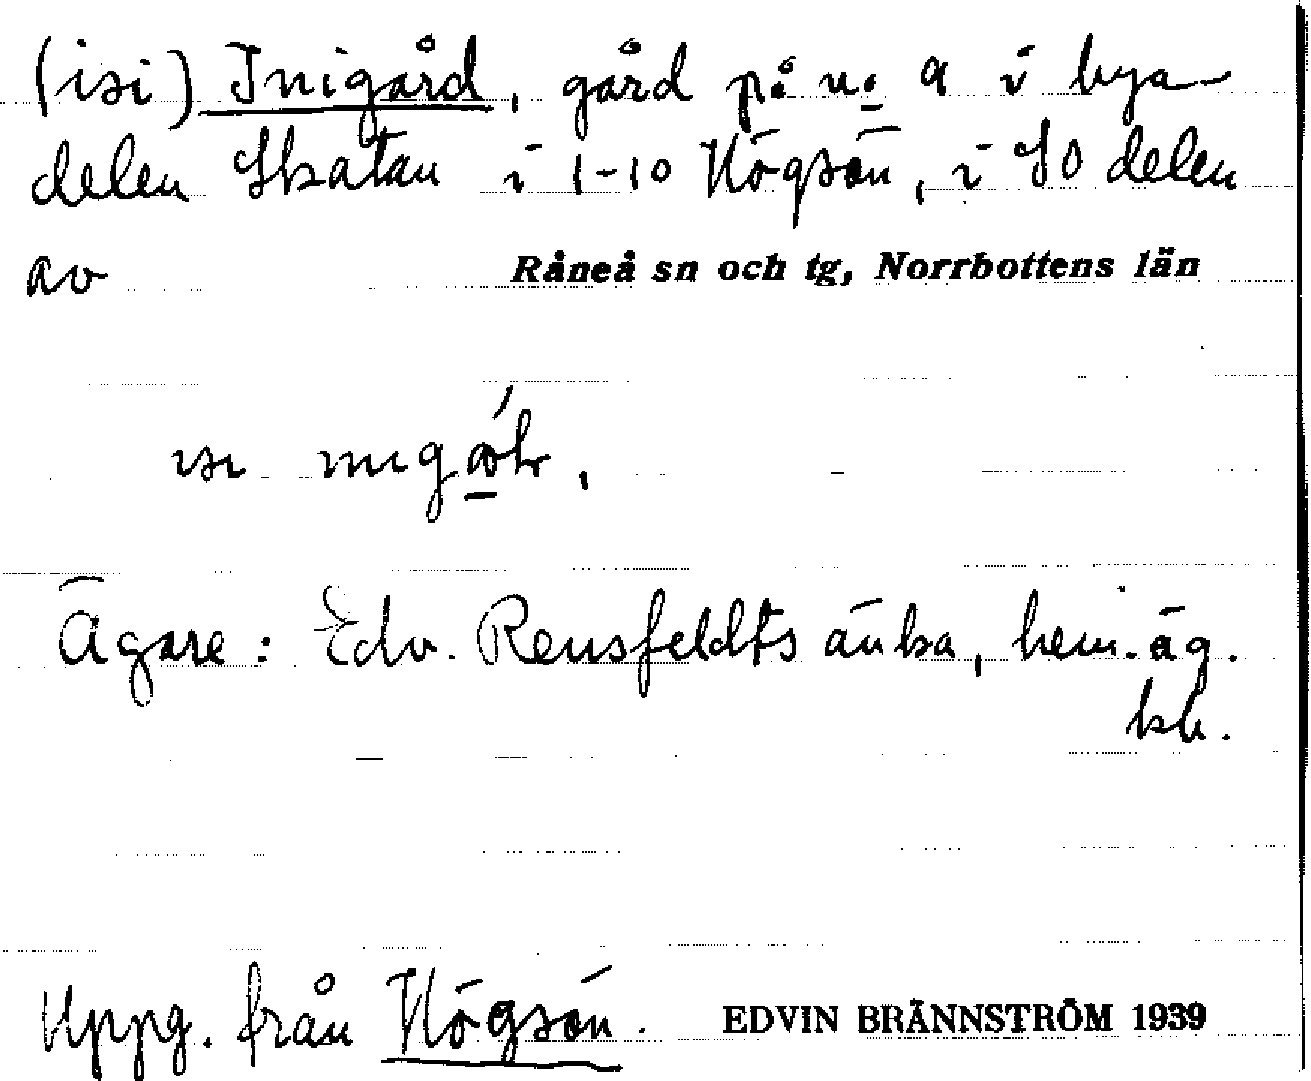 (isi) Inigård, gård på n: 9 i bya-
delen Skatan i 1-10 Högsön, i SO delen
av Råneå sn och tg, Norrbottens län
Ägare: Edv. Rensfeldts änka, hem. äg.
Uppg. från Högsön. EDVIN BRÄNNSTRÖM 1939